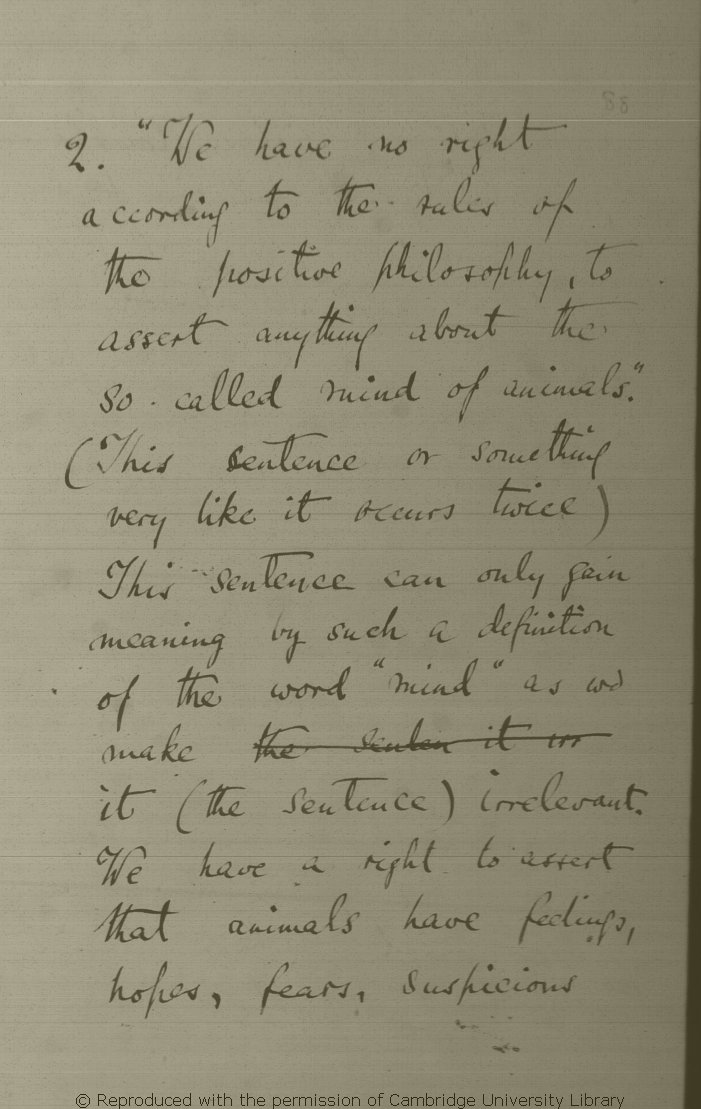 2. "We have no right
according to the rules of
the positive philosophy, to
assert anything about the
so-called mind of animals."
(This sentence or something
very like it occurs twice)
This sentence can only gain
meaning by such a definition
of the word "mind" as wd
make the senten it irr
it (the sentence) irrelevant.
We have a right to assert
that animals have feelings,
hopes, fears, suspicions
© Reproduced with the permission of Cambridge University Library